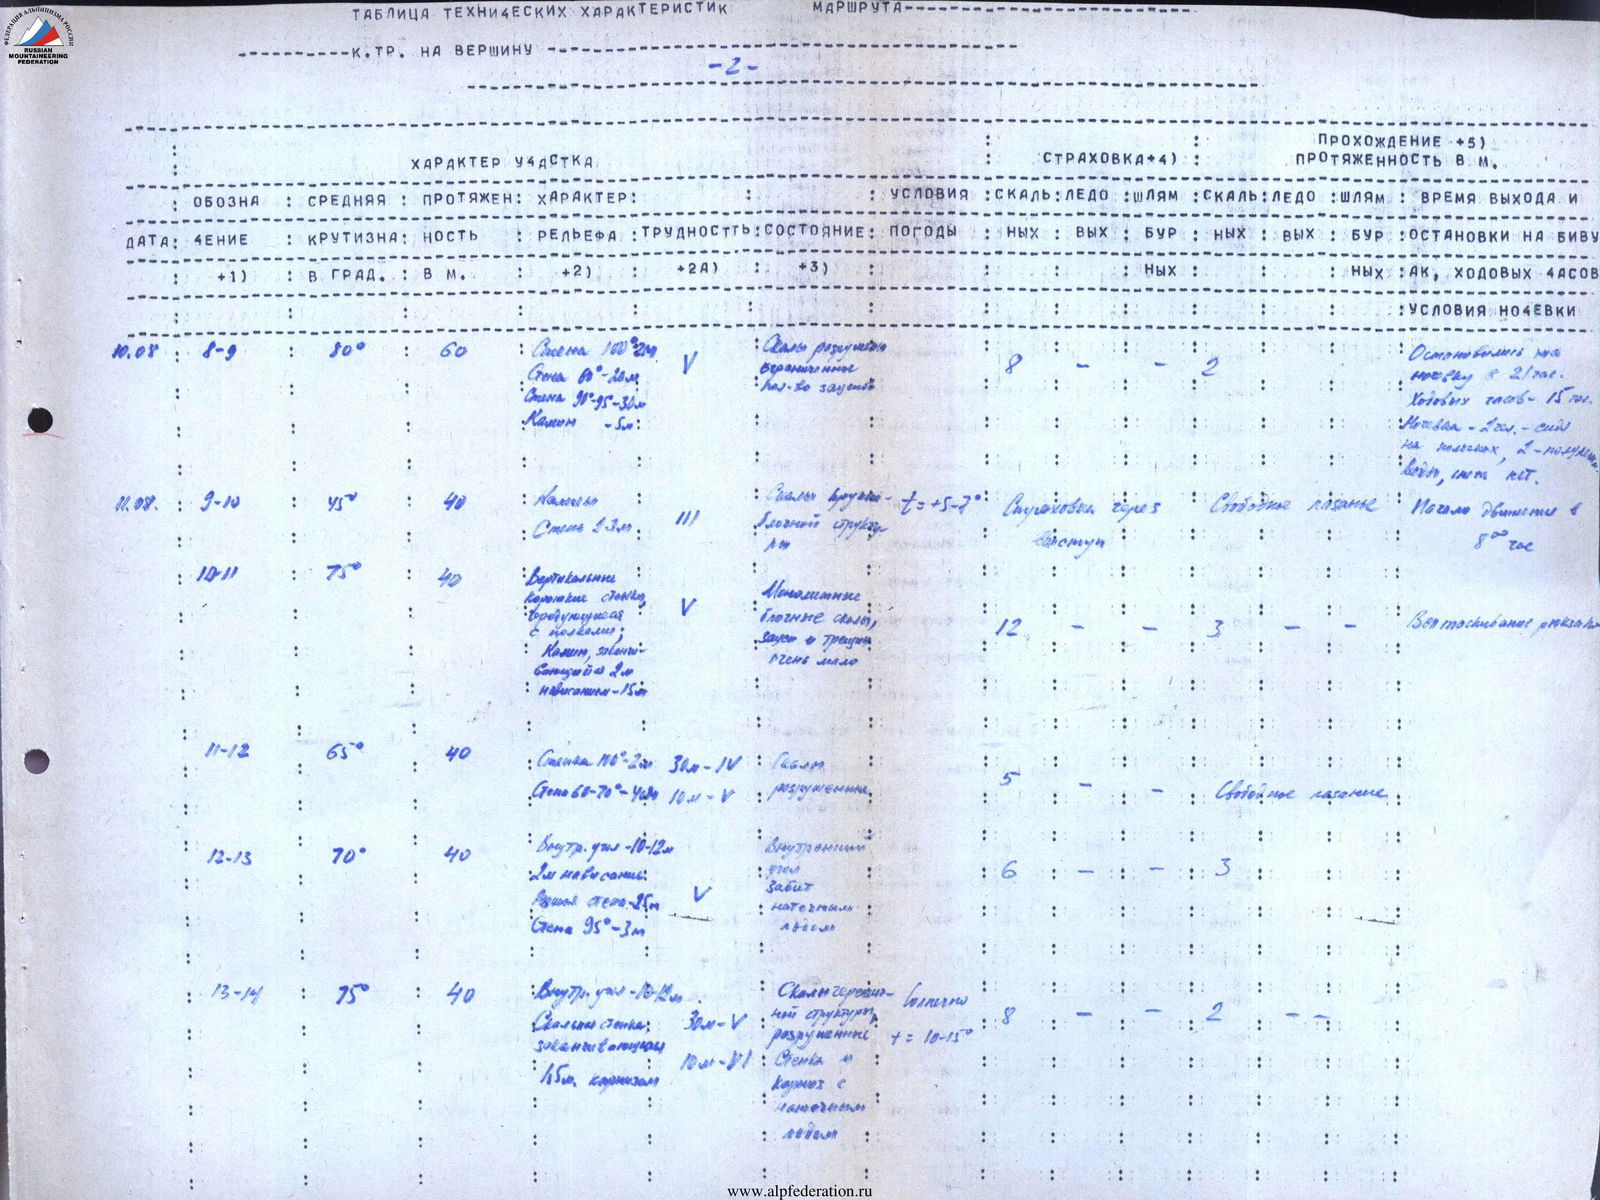 ФЕДЕРАЦИЯ АЛЬПИНИЗМА РОССИИ
RUSSIAN
MOUNTAINEERING
FEDERATION
ТАБЛИЦА ТЕХНИ4ЕСКИХ ХАРАКТЕРИСТИК МАРШРУТА
К.ТР. НА ВЕРШИНУ
-2-
ХАРАКТЕР У4АСТКА
СТРАХОВКА+4)
ПРОХОЖДЕНИЕ +5)
ПРОТЯЖЕННОСТЬ В М.
ОБОЗНА : СРЕДНЯЯ : ПРОТЯЖЕН: ХАРАКТЕР: : : УСЛОВИЯ :СКАЛЬ:ЛЕДО :ШЛЯМ :СКАЛЬ:ЛЕДО :ШЛЯМ : ВРЕМЯ ВЫХОДА И
ДАТА: 4ЕНИЕ : КРУТИЗНА: НОСТЬ : РЕЛЬЕФА :ТРУДНОСТТЬ:СОСТОЯНИЕ: ПОГОДЫ : НЫХ : ВЫХ : БУР : НЫХ : ВЫХ : БУР :ОСТАНОВКИ НА БИВУ
+1) : В ГРАД. : В М. : +2) : +2А) : +3) : НЫХ : НЫХ :АК, ХОДОВЫХ 4АСОВ
:УСЛОВИЯ НО4ЕВКИ
10.08 8-9 80° 60
Стена 100°-2м
Стена 60°-20м
Стена 90°-95°-30м
Камин -5м
V
Скалы разрушены
ограниченное
кол-во зацепок
8 - - 2
Остановились на
ночевку в 21 час.
Ходовых часов - 15 час.
Ночевка - 2 чел. - сидя
на полках, 2 -
воды, снега нет.
11.08. 9-10 45° 40
Стены 2-3м
III
Скалы крупно-
блочной структу-
ры
t = +5-7°
Страховка через
выступы
Свободное лазанье
Начало движения в
8⁰⁰ час
10-11 75° 40
Вертикальные
короткие стенки,
чередующиеся
с полками;
Камин, заканчи-
вающийся 2м
нависанием-15м
V
Монолитные
блочные скалы,
зацеп и трещин
очень мало
12 - - 3 - -
Вытаскивание рюкзаков
11-12 65° 40
Стенка 100°-2м
Стена 60-70°-40м
30м-IV
10м-V
Скалы
разрушенные
5 - - Свободное лазание
12-13 70° 40
Внутр. угол -10-12м
2м нависание
стена-25м
Стена 95°-3м
V
Внутренний
угол
забит
натечным
льдом
6 - - 3
13-14 75° 40
Внутр. угол -10-12м
Скальная стенка,
заканчивающаяся
1,5м. карнизом
30м-V
10м-VI
Скалы черепич-
ной структуры,
разрушенные
Стенка и
карниз с
натечным
льдом
Солнечно
t = 10-15°
8 - - 2 - -
www.alpfederation.ru